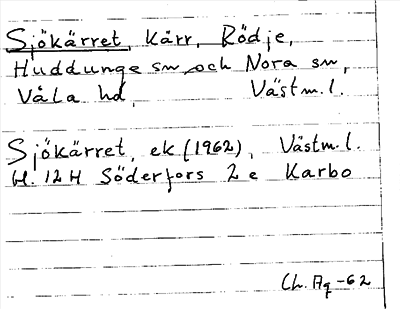 Sjökärret, kärr, Rödje,
Huddunge sn och Nora sn,
Våla hd, Västm.l.
Sjökärret, ek (1962), Västm.l.
bl. 12 H Söderfors 2 e Karbo
Ch. Ag -62